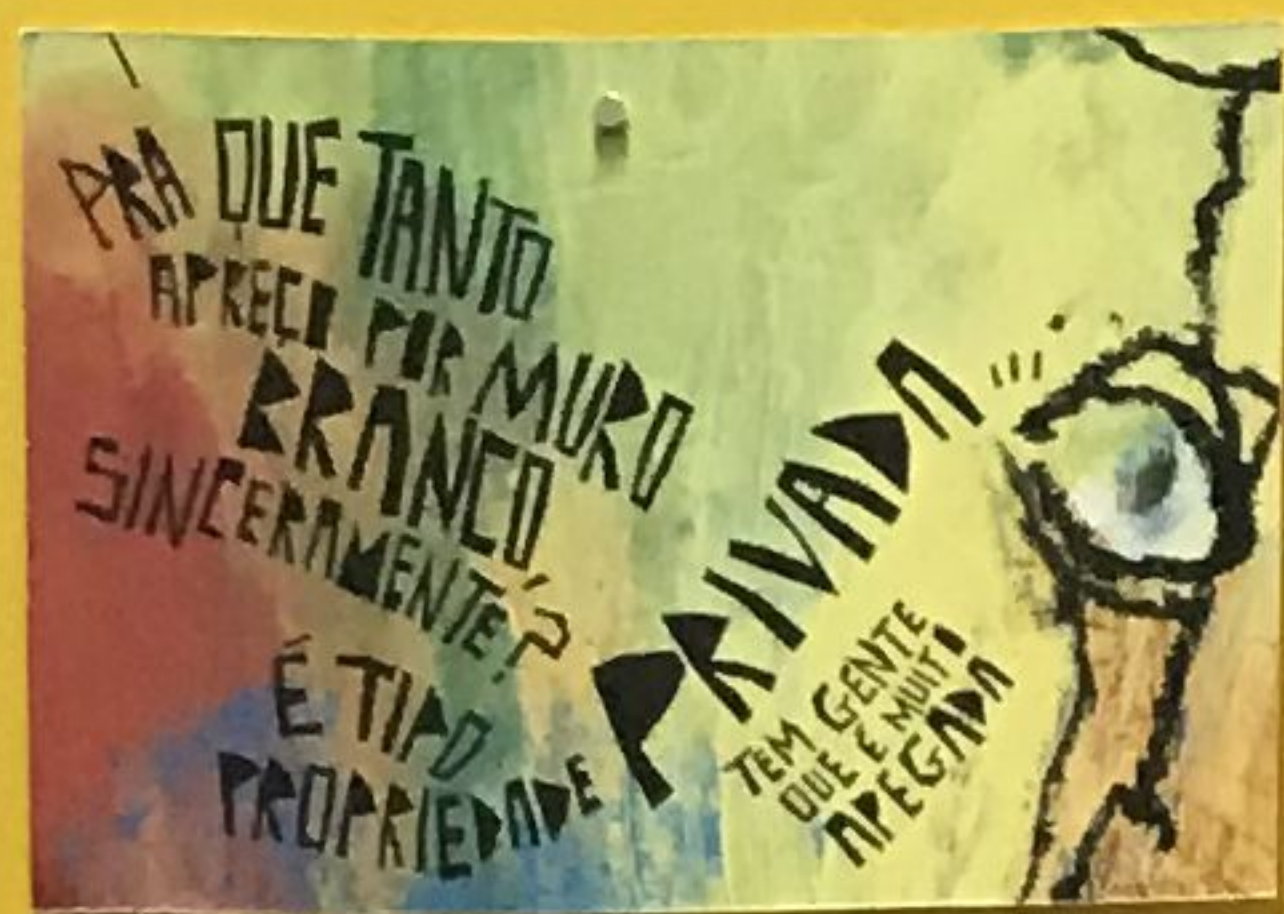 PRA QUE TANTO
APREÇO POR MURO
BRANCO
SINCERAMENTE?
É TIPO
PROPRIEDADE
PRIVADA
TEM GENTE
QUE É MUITO
APEGADA